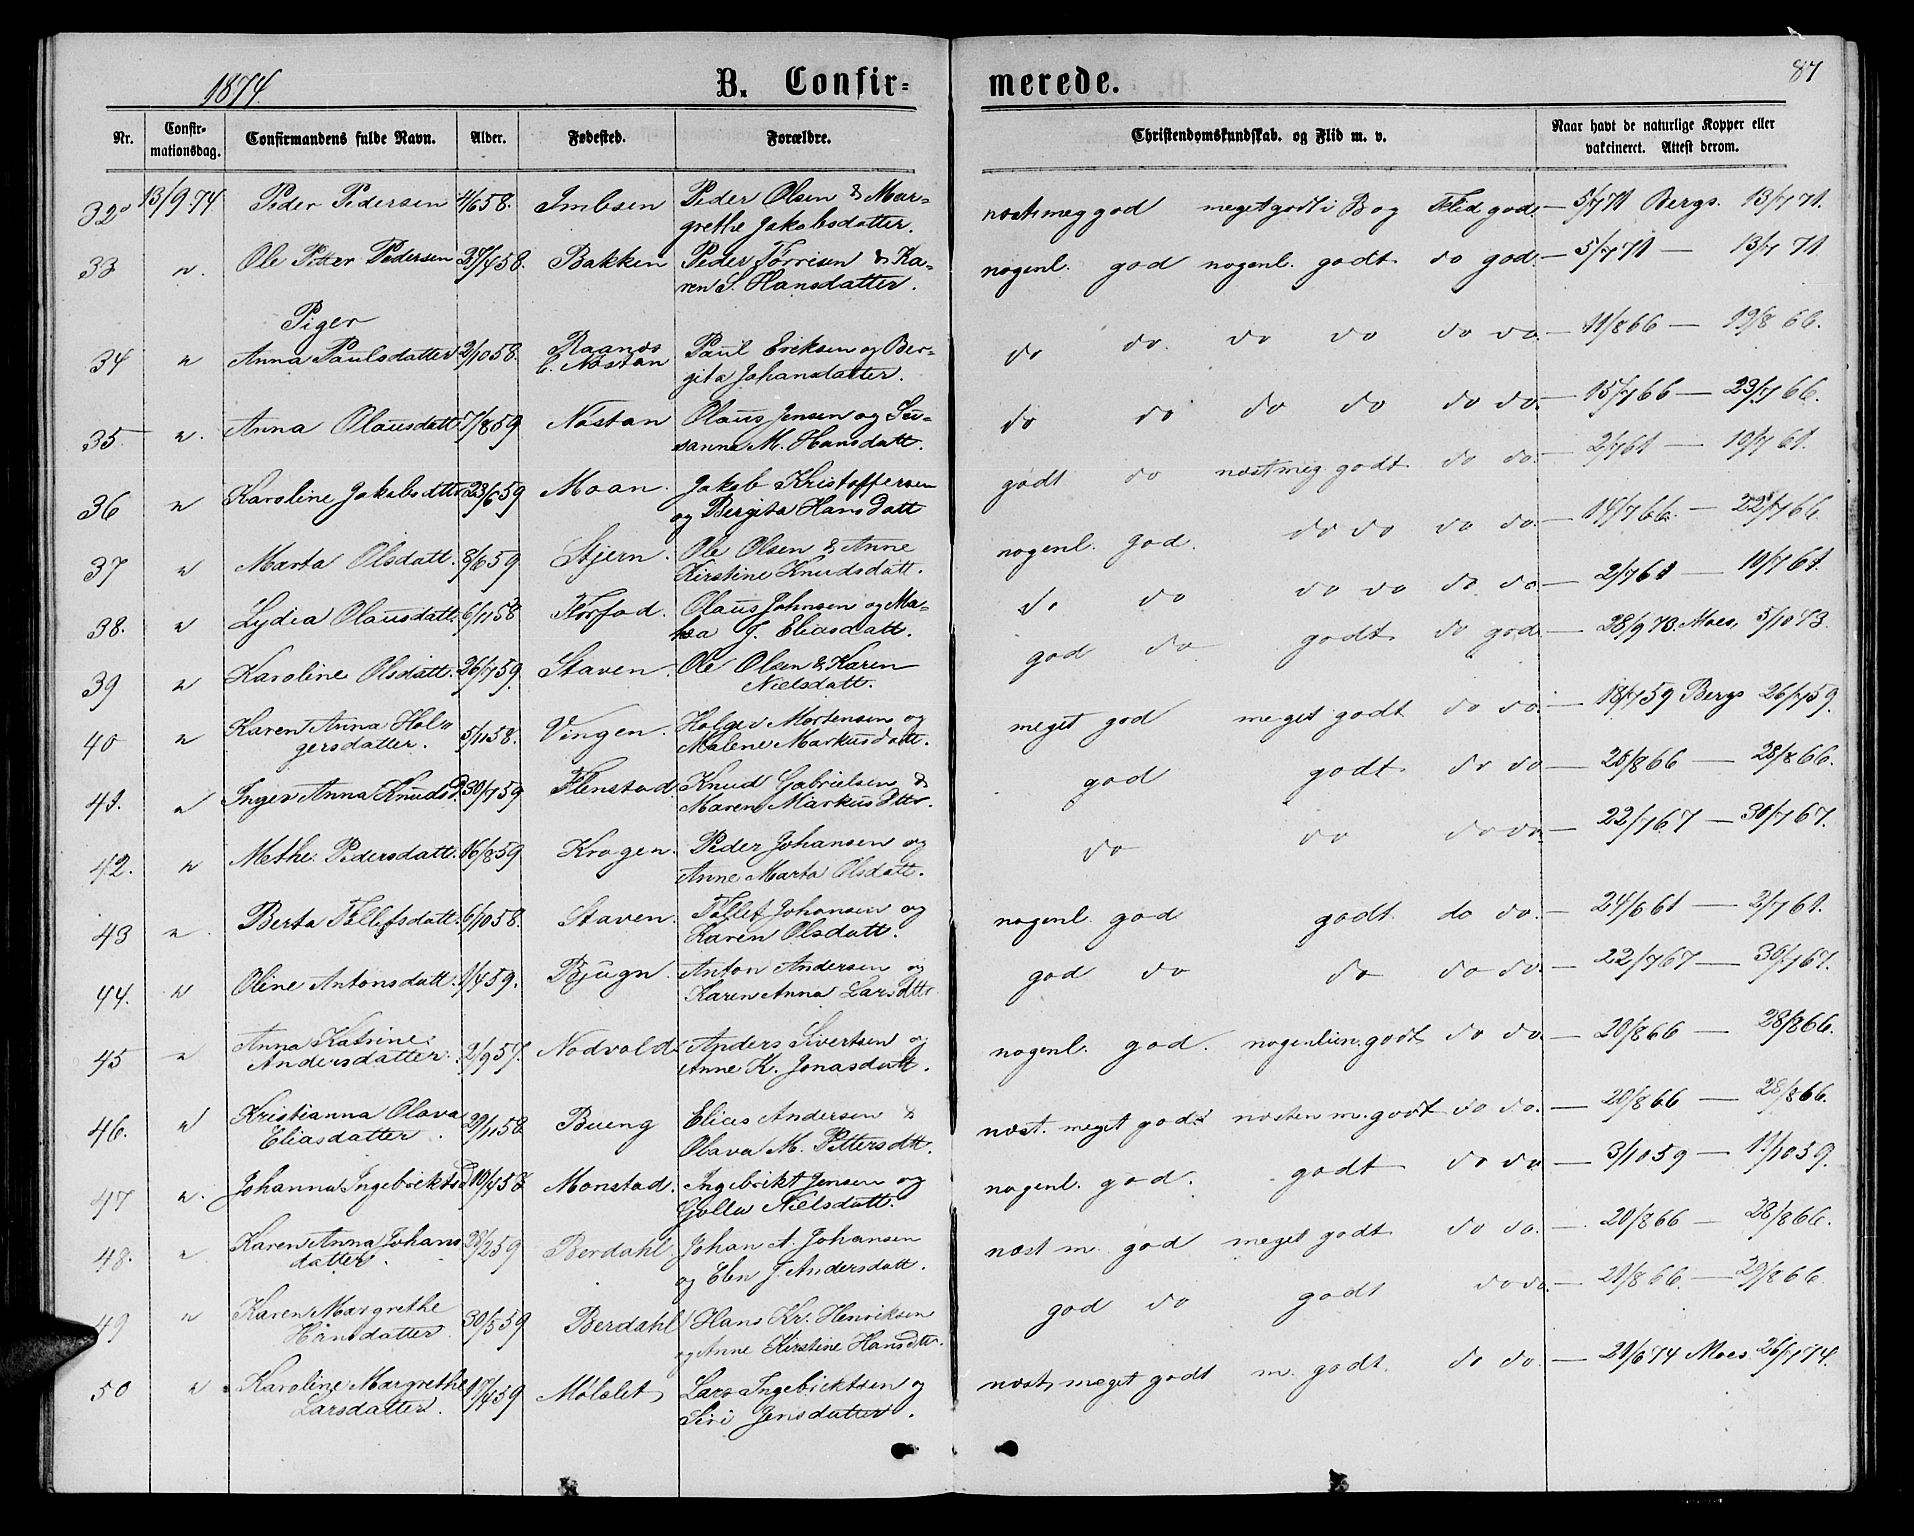 1874.
B. Confir-
merede.
87
Nr.
Confir-
mationsdag.
Confirmandens fulde Navn.
Alder.
Fødested.
Forældre.
Christendomskundskab. og Flid m. v.
Naar havt de naturlige Kopper eller
vakcineret. Attest derom.
32 13/9 74. Peder Pedersen 4/6 58. Imbsen Peder Olsen & Mar-
grethe Jakobsdatter.
næst meg god meget godt i Bog Flid god. — 5/7 71 Bergs. 13/7 71.
33 " Ole Petter Pedersen 27/4 58. Bakken Peder Torrisen & Ka-
ren S. Hansdatter.
nogenl. god nogenl. godt do god. — 5/7 71 — 13/7 71.
Piger
34 " Anna Paulsdatter 2/10 58. Raanes
Nøstan
Paul Eriksen og Ber-
gita Johansdatter.
do do. do do do do. — 11/8 66 — 19/8 66.
35. " Anna Olausdatt. 7/8 59 Nøstan Olaus Jensen og Su-
sanna M. Hansdatt.
do do do do do do. — 15/7 66 — 23/7 66.
36 " Karoline Jakobsdttr 23/6 59 Moan. Jakob Kristoffersen
og Bergita Hansdatt
godt do næst meg godt do do. — 2/7 61 — 10/7 61.
37 " Marta Olsdatt. 8/6 59 Stjern. Ole Olsen & Anne
Kirstine Knudsdatt.
nogenl. god. do do do do. — 14/7 66. — 22/7 66.
38. " Lydia Olausdatt. 6/11 58 Olaus Johnsen og Ma-
J. Eliasdatt.
do do do do do do — 2/7 61 — 10/7 61.
39 " Karoline Olsdatt. 26/7 59. Staven. Ole Olsen & Karen
Nielsdatt.
god do godt do god. — 28/9 73. Moes, 5/10 73.
40 " Karen Anna Hol-
gersdatter.
5/11 58. Vingen. Holger Mortensen og
Malene Markusdatt.
meget god meget godt do do. — 18/7 59 Bergs 26/7 59.
41. " Inger Anna Knudsd. 30/7 59 Flenstad. Knud Gabrielsen &
Maren Markusdttr.
god godt do do — 20/8 66 — 28/8 66.
42. " Methe Pedersdatt. 16/8 59 Krogen. Peder Johansen og
Anne Marta Olsdatt.
do do do do. — 22/7 67 — 30/7 67.
43 " Berta Tollefsdatt. 6/10 58. Staven. Tollef Johansen og
Karen Olsdatt.
nogenl. god godt. do do. — 24/6 61 — 2/7 61.
44. " Oline Antonsdatt. 1/4 59. Bjugn. Anton Andersen og
Karen Anna Larsdttr
god do do do do. — 22/7 67 — 30/7 67.
45 " Anna Katrine
Andersdatter.
2/9 57. Nodvold Anders Sivertsen og
Anne K. Jonasdatt.
nogenl. god. nogenlun. godt do do. — 20/8 66 — 28/8 66.
46. " Kristianna Olava
Eliasdatter.
29/11 58 Bueng Elias Andersen &
Olava M. Pettersdtt.
næst. meget god næsten m. godt do do. — 20/8 66 — 28/8 66.
47 " Johanna Ingebriktsd. 10/4 58 Monstad. Ingebrikt Jensen og
Golla Nielsdatt.
nogenl. god. godt do do — 3/10 59 — 11/10 59.
48. " Karen Anna Johans
datter.
28/2 59 Berdahl Johan A. Johansen
og Elen J. Andersdatt.
næst m. god meget godt do do. — 20/8 66 — 28/8 66.
49 " Karen Margrethe
Hansdatter.
30/5 59 Berdahl Hans Kr. Henriksen
og Anne Kirstine Hansdttr.
god do godt do do. — 21/8 66. — 29/8 66.
50 " Karoline Margrethe
Larsdatter.
17/4 59 Mølslet, Lars Ingebriktsen og
Siri Jensdatter.
næst, meget godt m. godt. do do. — 21/6 74 Moes 26/7 74.